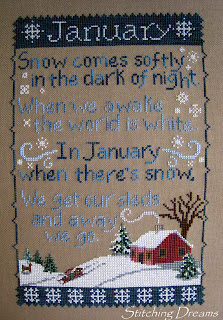 January
Snow comes softly
in the dark of night.
When we awake
the world is white.
In January
when there's snow,
We get our sleds
and away
we go.
Stitching Dreams